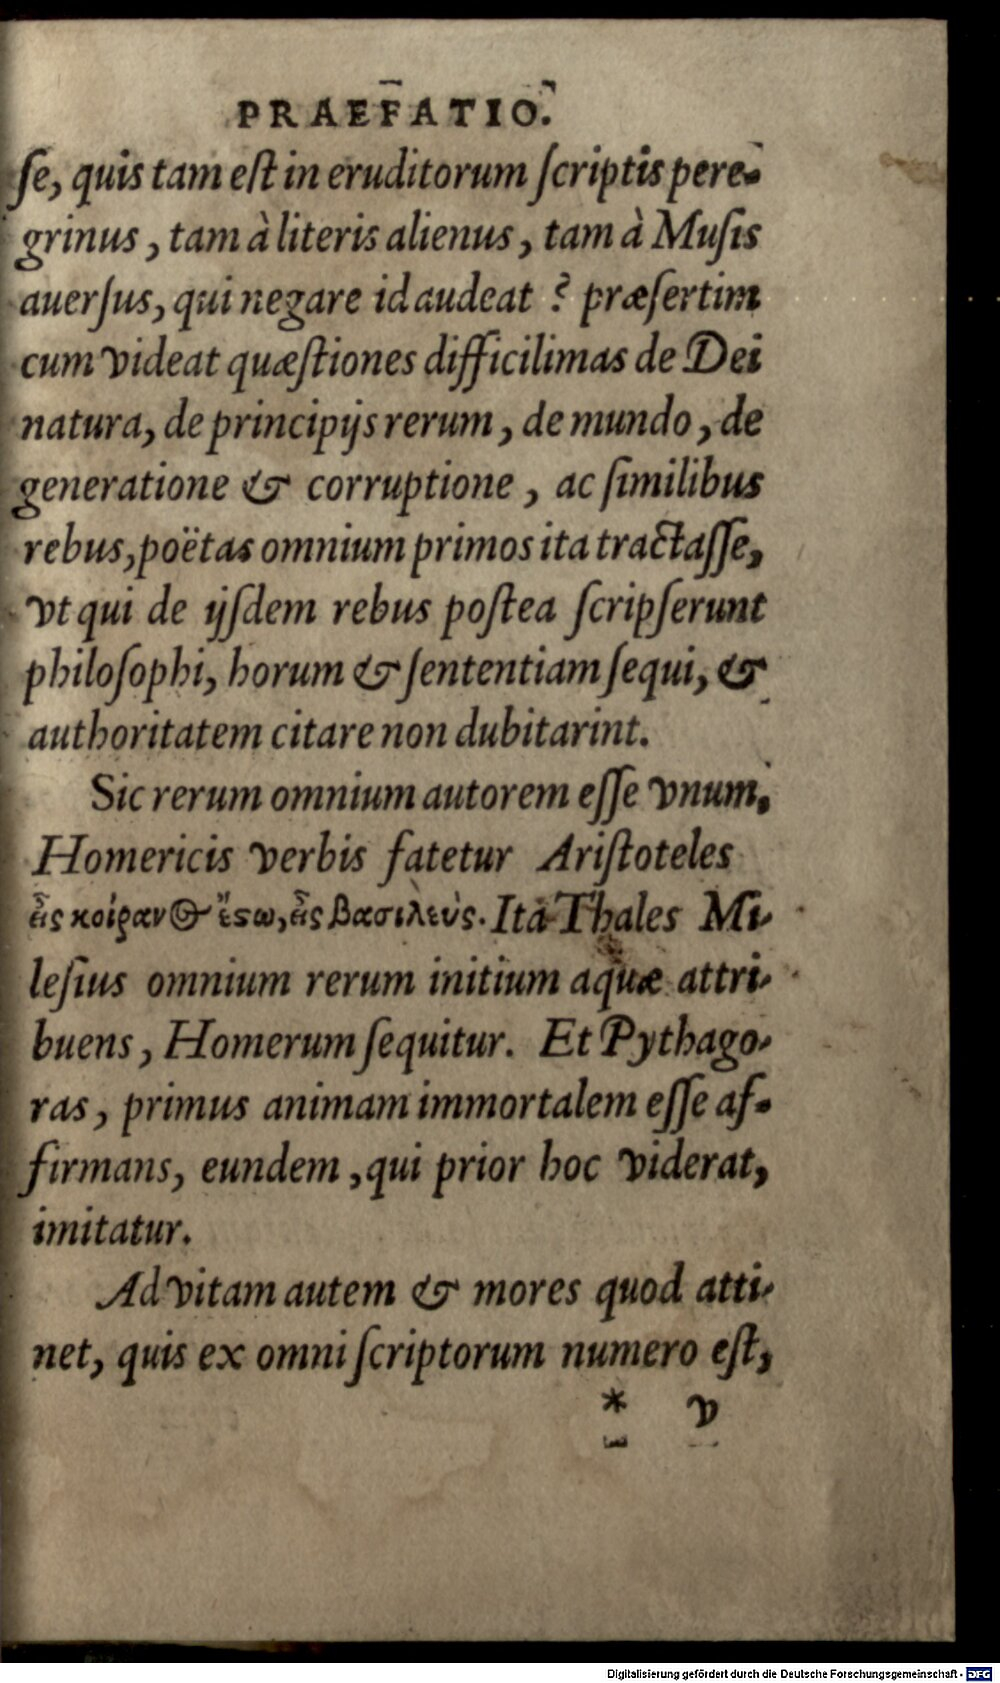 PRAEFATIO.
ſe, quis tam eſt in eruditorum ſcriptis pere-
grinus, tam à literis alienus, tam à Muſis
auerſus, qui negare id audeat? præſertim
cum videat quæſtiones difficilimas de Dei
natura, de principijs rerum, de mundo, de
generatione & corruptione, ac ſimilibus
rebus, poëtas omnium primos ita tractaſſe,
vt qui de ijſdem rebus poſtea ſcripſerunt
philoſophi, horum & ſententiam ſequi, &
authoritatem citare non dubitarint.
Sic rerum omnium autorem eſſe vnum,
Homericis verbis fatetur Ariſtoteles
εἷς κοίρανος ἔςω, εἷς βασιλεύς. Ita Thales Mi-
leſius omnium rerum initium aquæ attri-
buens, Homerum ſequitur. Et Pythago-
ras, primus animam immortalem eſſe af-
firmans, eundem, qui prior hoc viderat,
imitatur.
Ad vitam autem & mores quod atti-
net, quis ex omni ſcriptorum numero eſt,
* v
Digitalisierung gefördert durch die Deutsche Forschungsgemeinschaft - DFG